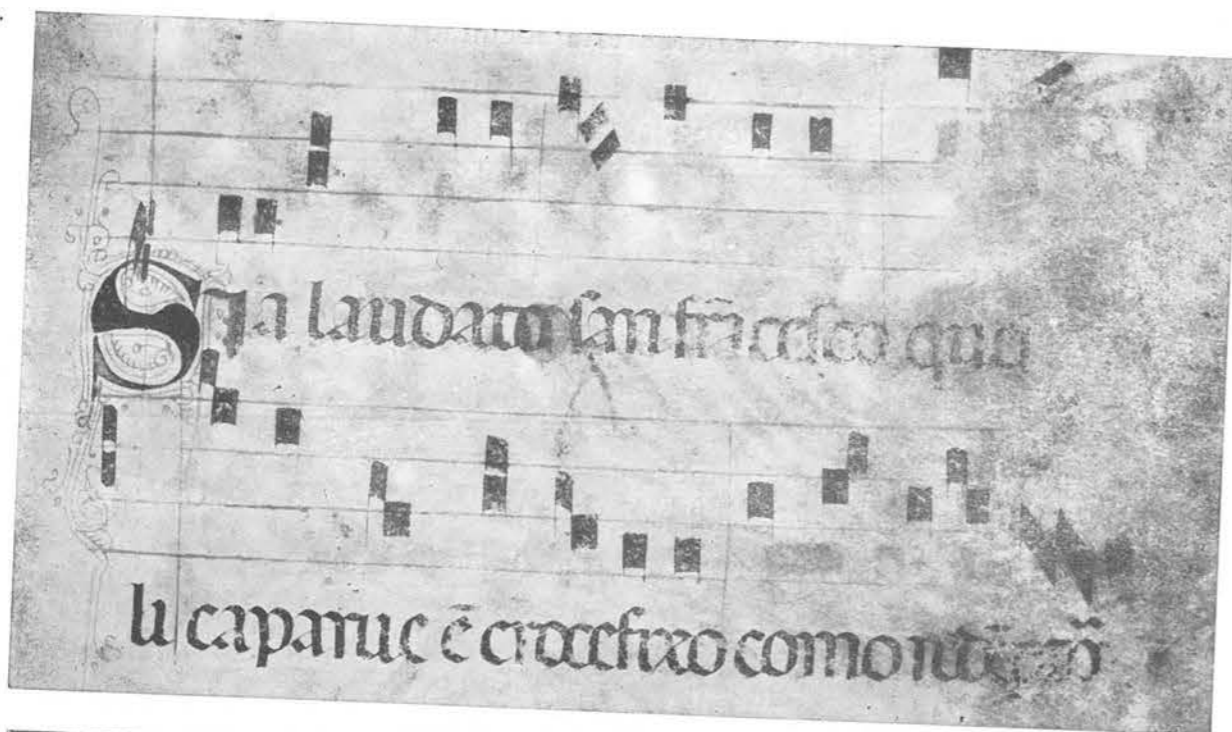 Sia laudato san frācesco quel
li caparue ē crocefixo como